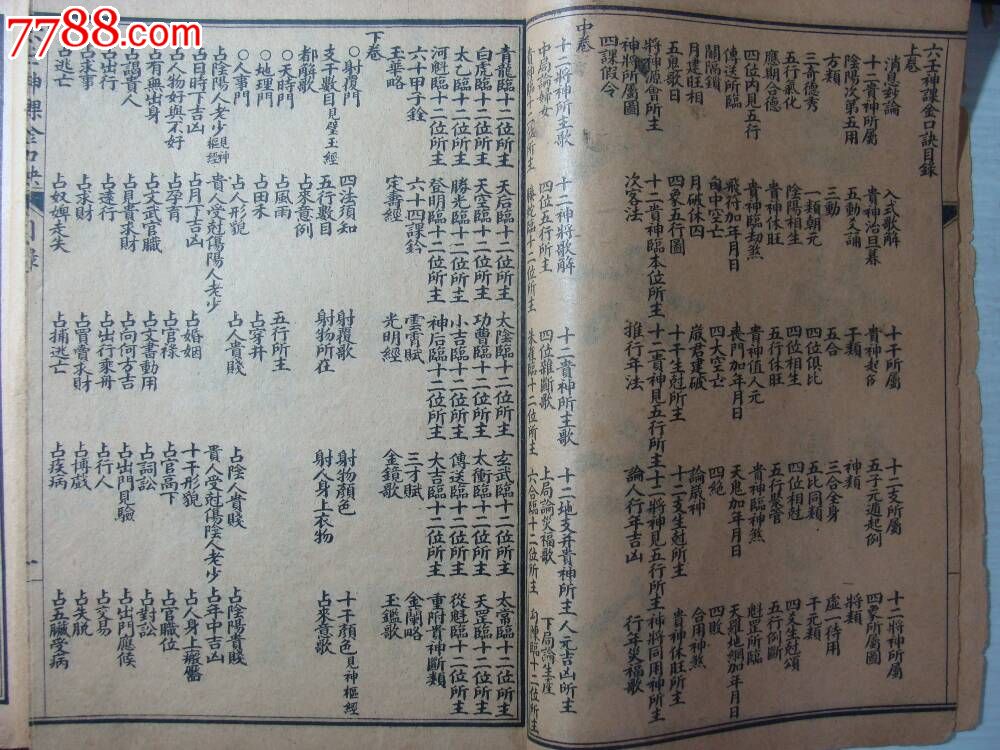 7788.com
六壬神課金口訣目錄
上卷
消息對論 入式歌解 十干所屬 十二支所屬 十二將神所屬
十二貴神所屬 貴神治旦暮 貴神起例 五子元遁起例 四象所屬圖
陰陽次第五用 五動又誦 干類 神類 將類
方類 三動 五合 三合全身 虛一待用
三奇德秀 一類朝元 四位俱比 五比同類 干元類
五行氣化 陰陽相生 四位相生 四位相尅 四支生尅頌
應期合德 貴神休旺 五行休旺 五行聚管 五行例斷
四位內見五行 貴神臨劫煞 貴神值人元 貴神臨神煞 魁罡所臨
傳送所臨 飛符加年月日 喪門加年月日 天鬼加年月日 天羅地網加年月日
關隔鎖 旬中空亡 四大空亡 四絕 四敗
月建旺相 月破休囚 歲君建破 論歲神 合用神煞
五鬼歌日 四象五行圖 十干生尅所主 十二支生尅所主 貴神休旺所主
將神總會所主 十二貴神臨本位所主 十二貴神見五行所主 十二將神見五行所主 神將同用神所主
神將所屬圖 次客法 推行年法 論人行年吉凶 行年災福歌
四課假令
中卷
十二將神所主歌 十二神將歌解 十二貴神所主歌 十二地支并貴神所主 人元吉凶所主
中局論婦女 四位五行所主 四位雜斷歌 上局論災福歌 下局論生產
貴神臨十二位所主 螣蛇臨十二位所主 朱雀臨十二位所主 六合臨十二位所主 勾陳臨十二位所主
青龍臨十二位所主 天后臨十二位所主 太陰臨十二位所主 玄武臨十二位所主 太常臨十二位所主
白虎臨十二位所主 天空臨十二位所主 功曹臨十二位所主 太衝臨十二位所主 天罡臨十二位所主
太乙臨十二位所主 勝光臨十二位所主 小吉臨十二位所主 傳送臨十二位所主 從魁臨十二位所主
河魁臨十二位所主 登明臨十二位所主 神后臨十二位所主 大吉臨十二位所主 重附貴神斷類
六十甲子銓 六十四課鈐 雲霄賦 三才賦 金闌略
玉華略 定書經 光明經 金鏡歌 玉鑑歌
下卷
○射覆門 四法須知 射覆歌 射物顏色 十干顏色見神樞經
支干數目見璧玉經 五行數目 射物所在 射人身上衣物 占來意歌
都解歌 占來意例
○天時門 占風雨 五行所主
○地理門 占田禾 占穿井
○人事門 占人形貌 占人貴賤 占陰人貴賤 占陰陽貴賤
占陰陽人老少見神樞經 貴人受尅傷陽人老少 貴人受尅傷陰人老少 占年中吉凶
占日時下吉凶 占月下吉凶 十干形貌 占人身上瘢靨
占人物好與不好 占孕育 占婚姻 占官高下 占官職位
占有無出身 占文武官職 占官祿 占詞訟 占對訟
占謁貴人 占見貴求財 占文書動用 占出門見驗 占出門應候
占出行 占遠行 占向何方吉 占行人 占交易
占求事 占求財 占出行乘舟 占博戲 占失脫
占逃亡 占奴婢走失 占買賣求財 占疾病 占五臟受病
占捕逃亡
六壬神課金口訣 目錄 一